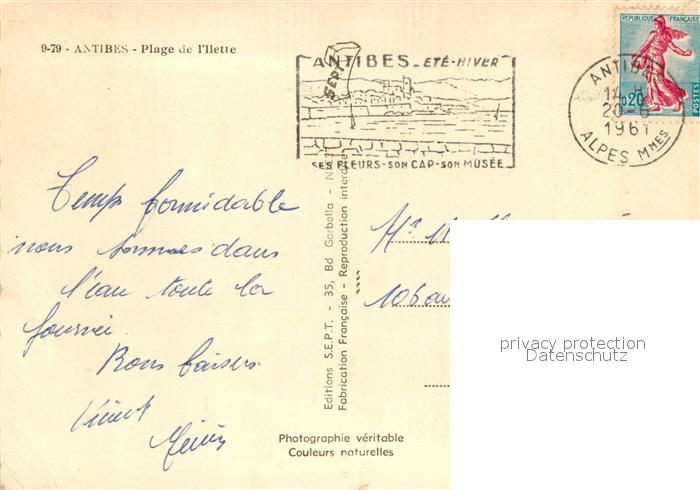 9-79 - ANTIBES - Plage de l'Ilette
ANTIBES - ETÉ-HIVER
SES FLEURS - SON CAP - SON MUSÉE
RÉPUBLIQUE FRANÇAISE
0,20
POSTES
ANTIBES
14 H
20-6
1961
ALPES MMES
SEPT
Temps formidable
nous sommes dans
l'eau toute la
journée.
Bons baisers
Editions S.E.P.T. - 35, Bd Gorbella -
Fabrication Française - Reproduction interdite
Photographie véritable
Couleurs naturelles
Mr
106 av
privacy protection
Datenschutz